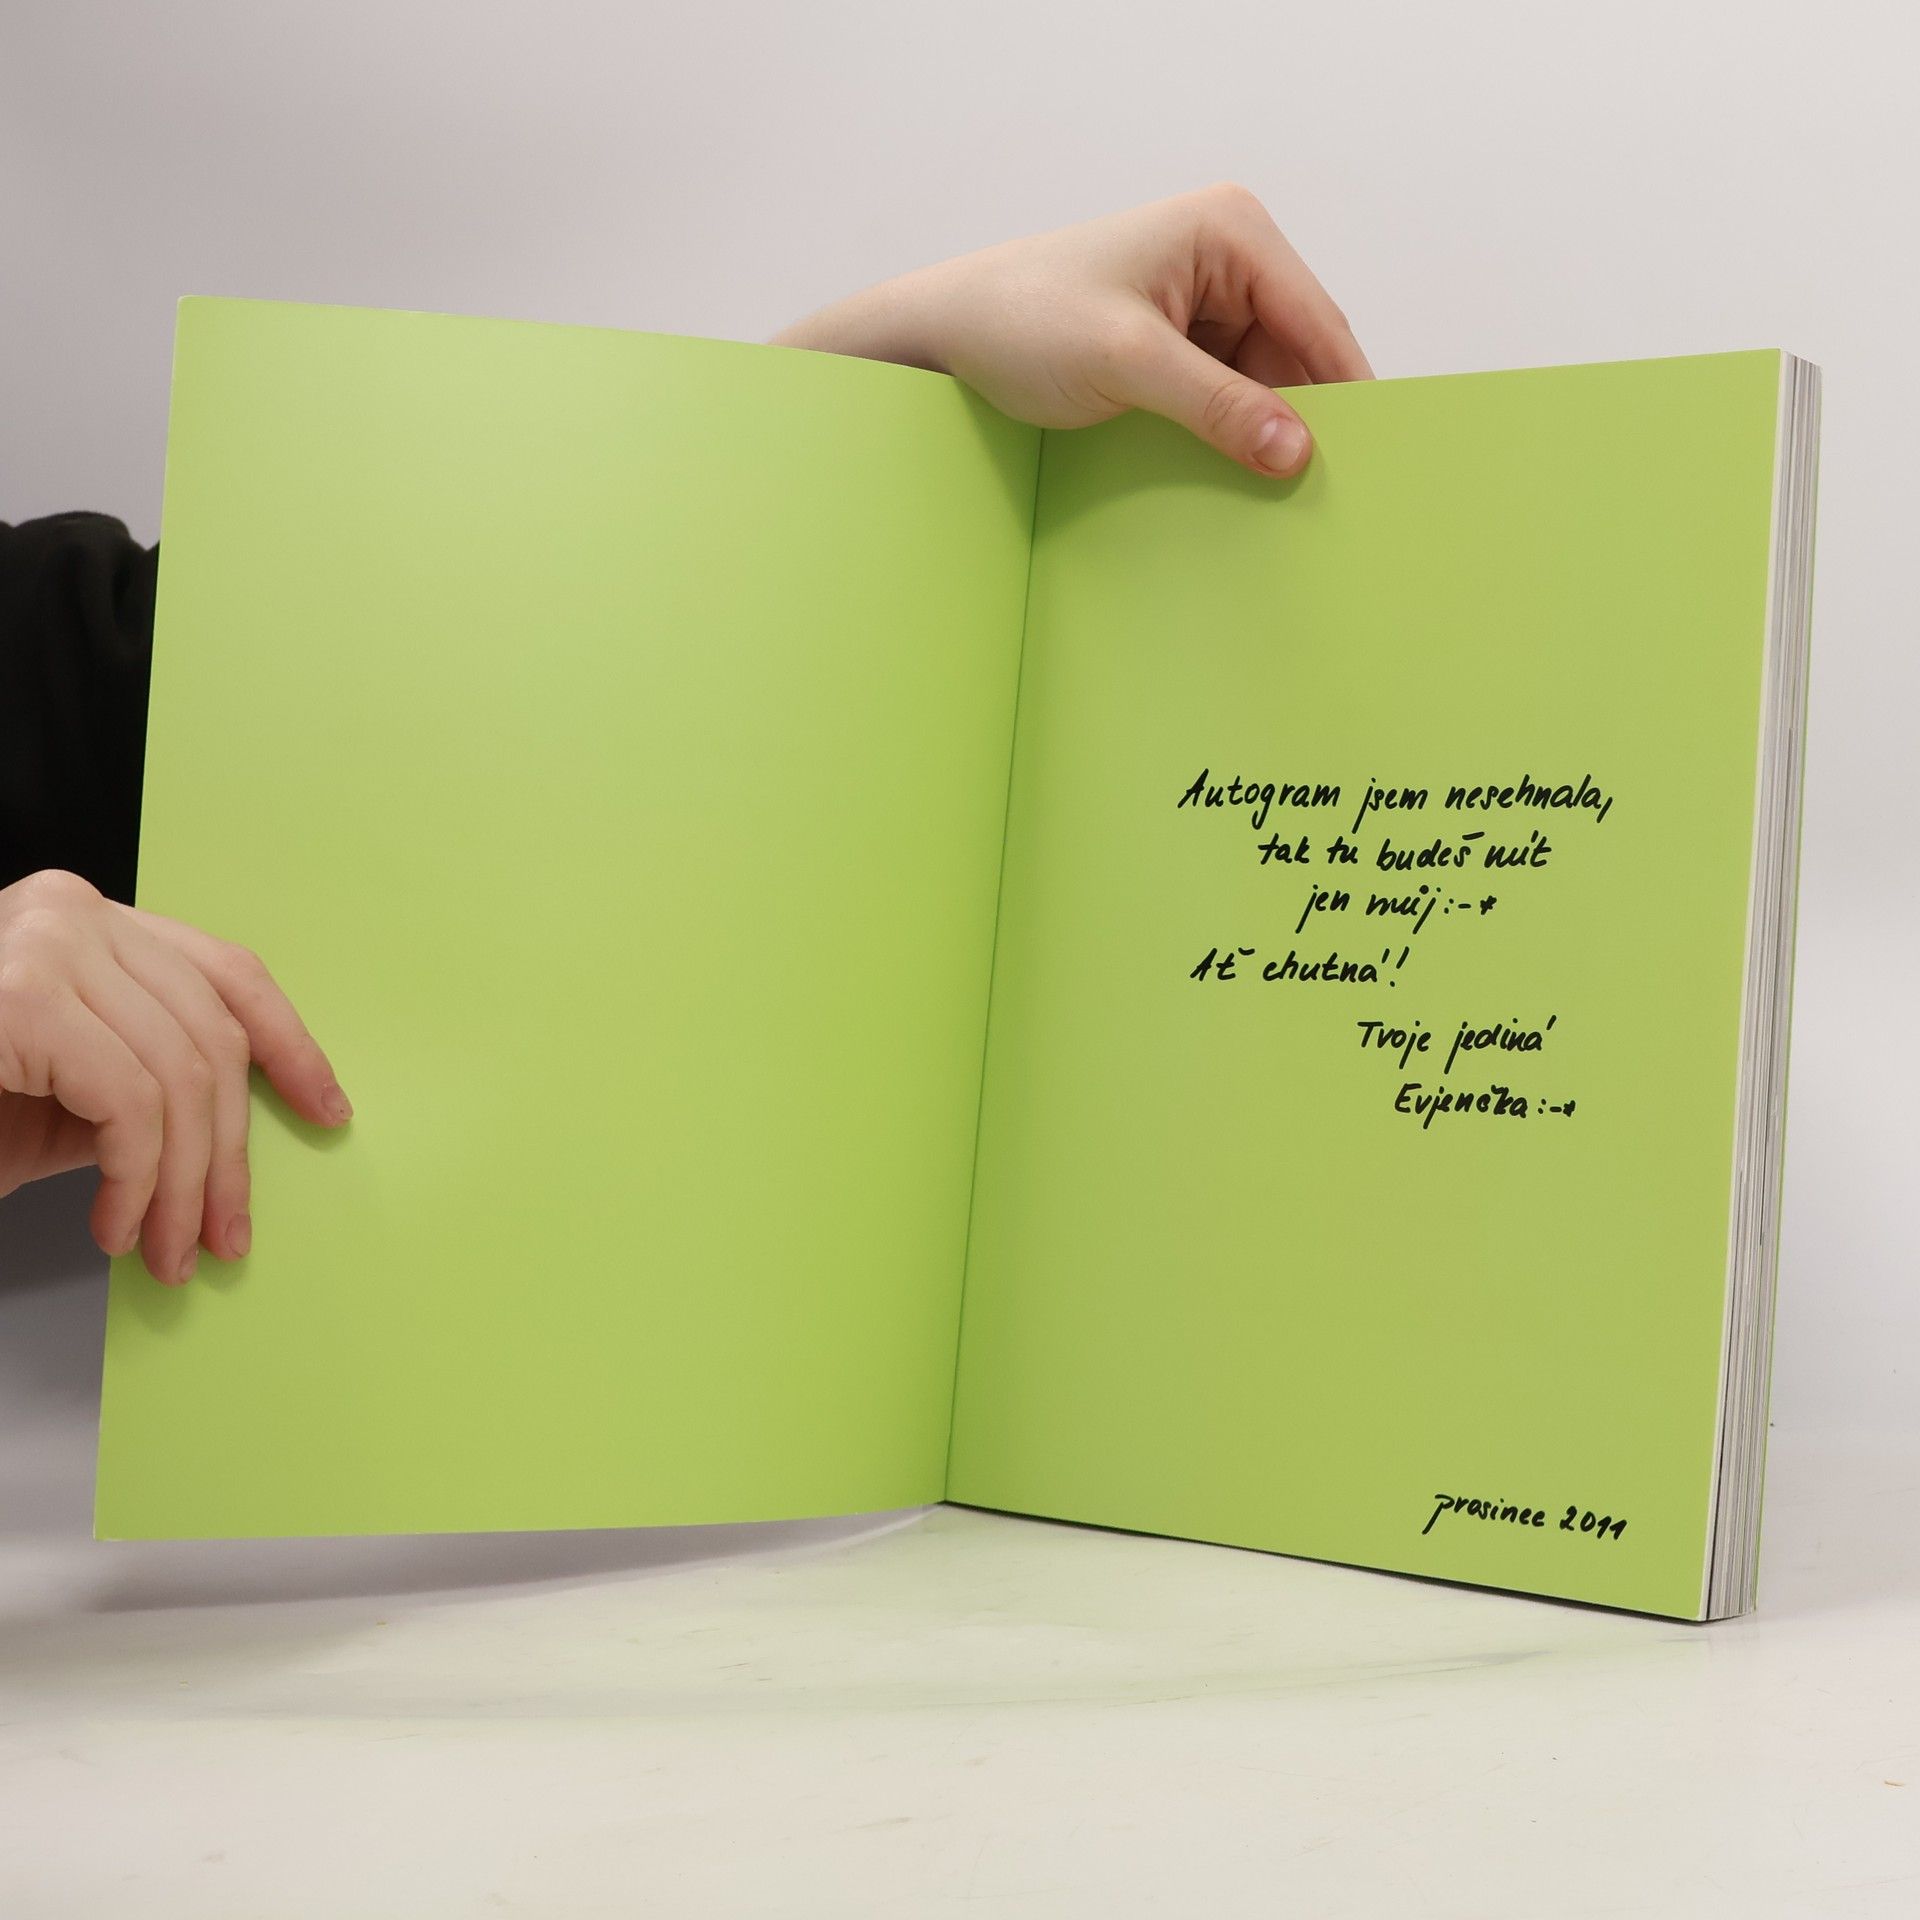 Autogram jsem nesehnala,
tak tu budeš mít
jen můj :-*
Ať chutná!
Tvoje jediná
Evjenčka :-*
prosinec 2011